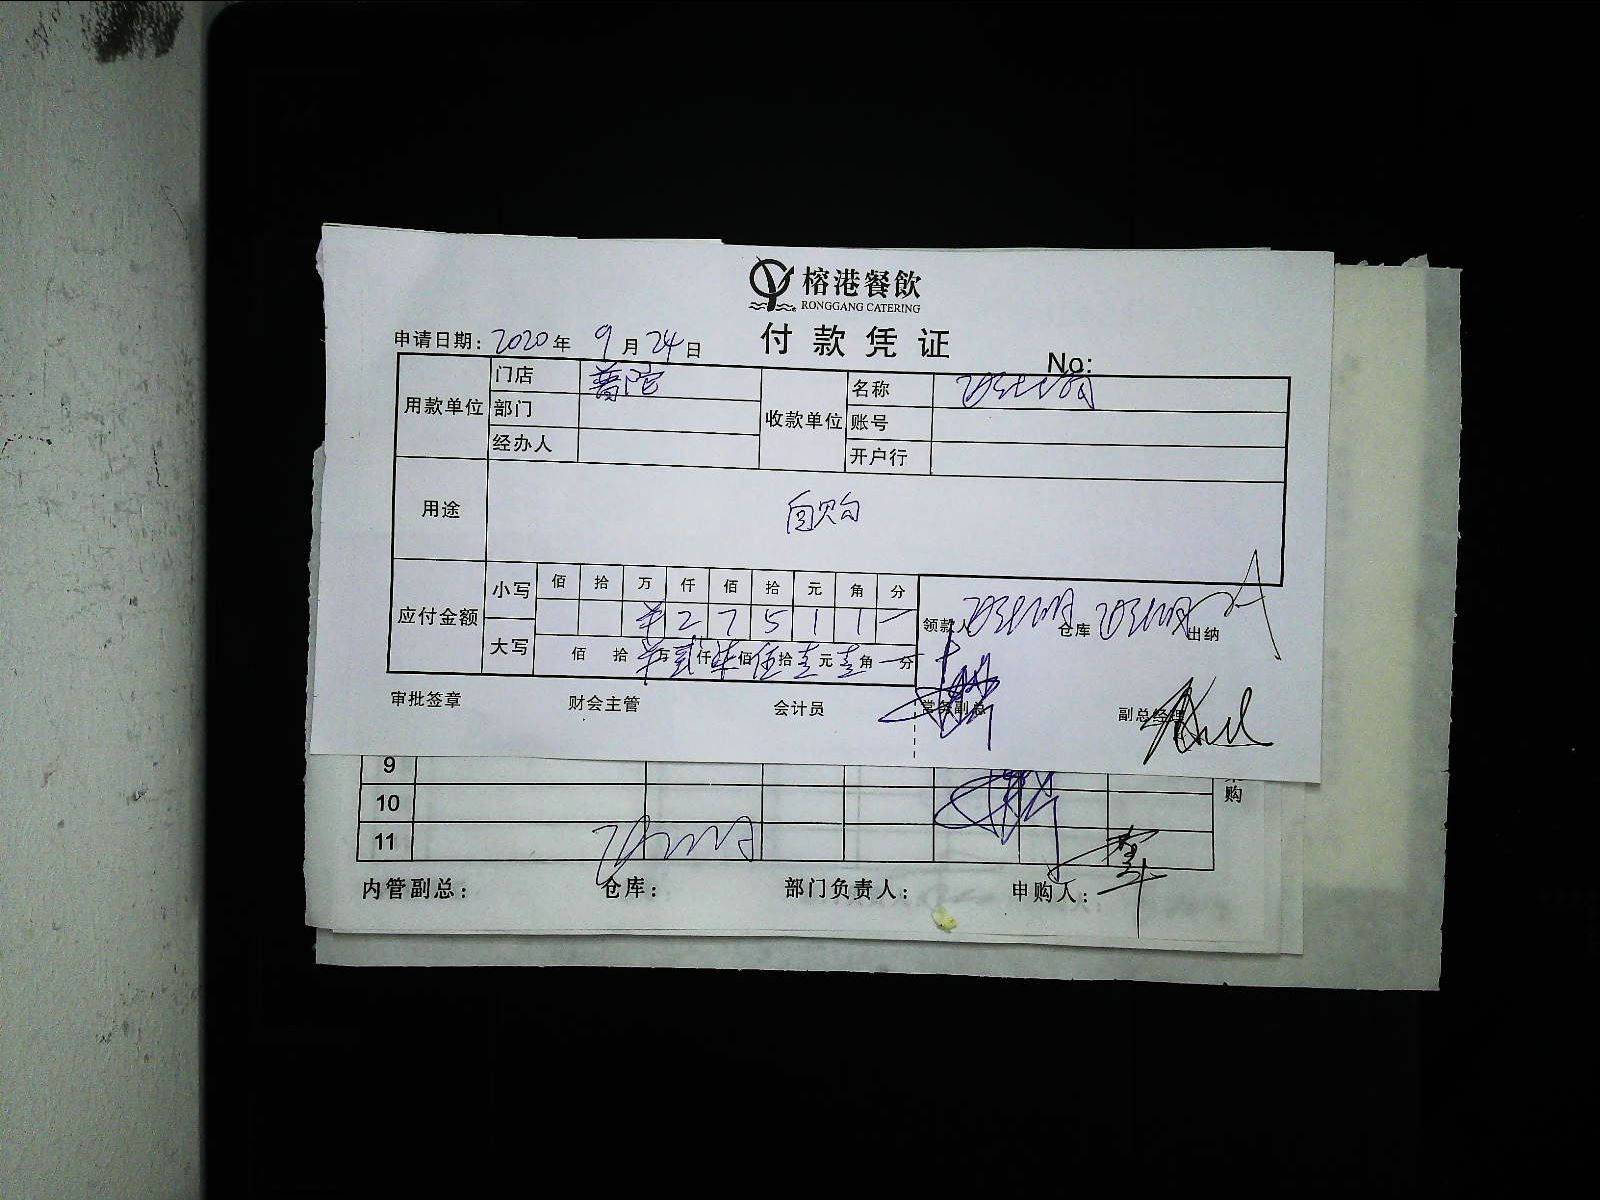 榕港餐飲
RONGGANG CATERING
付款凭证
申请日期：2020年 9月24日
No:
用款单位 门店 普陀 收款单位 名称
部门 账号
经办人 开户行
用途 自购
应付金额 小写 佰 拾 万 仟 佰 拾 元 角 分
¥ 2 7 5 1 1 一
大写 佰 拾 万 贰仟 柒佰 伍拾 壹元 壹角 一分
领款人 仓库 出纳
审批签章 财会主管 会计员 常务副总 副总经理
9
10
11
购
内管副总： 仓库： 部门负责人： 申购人：